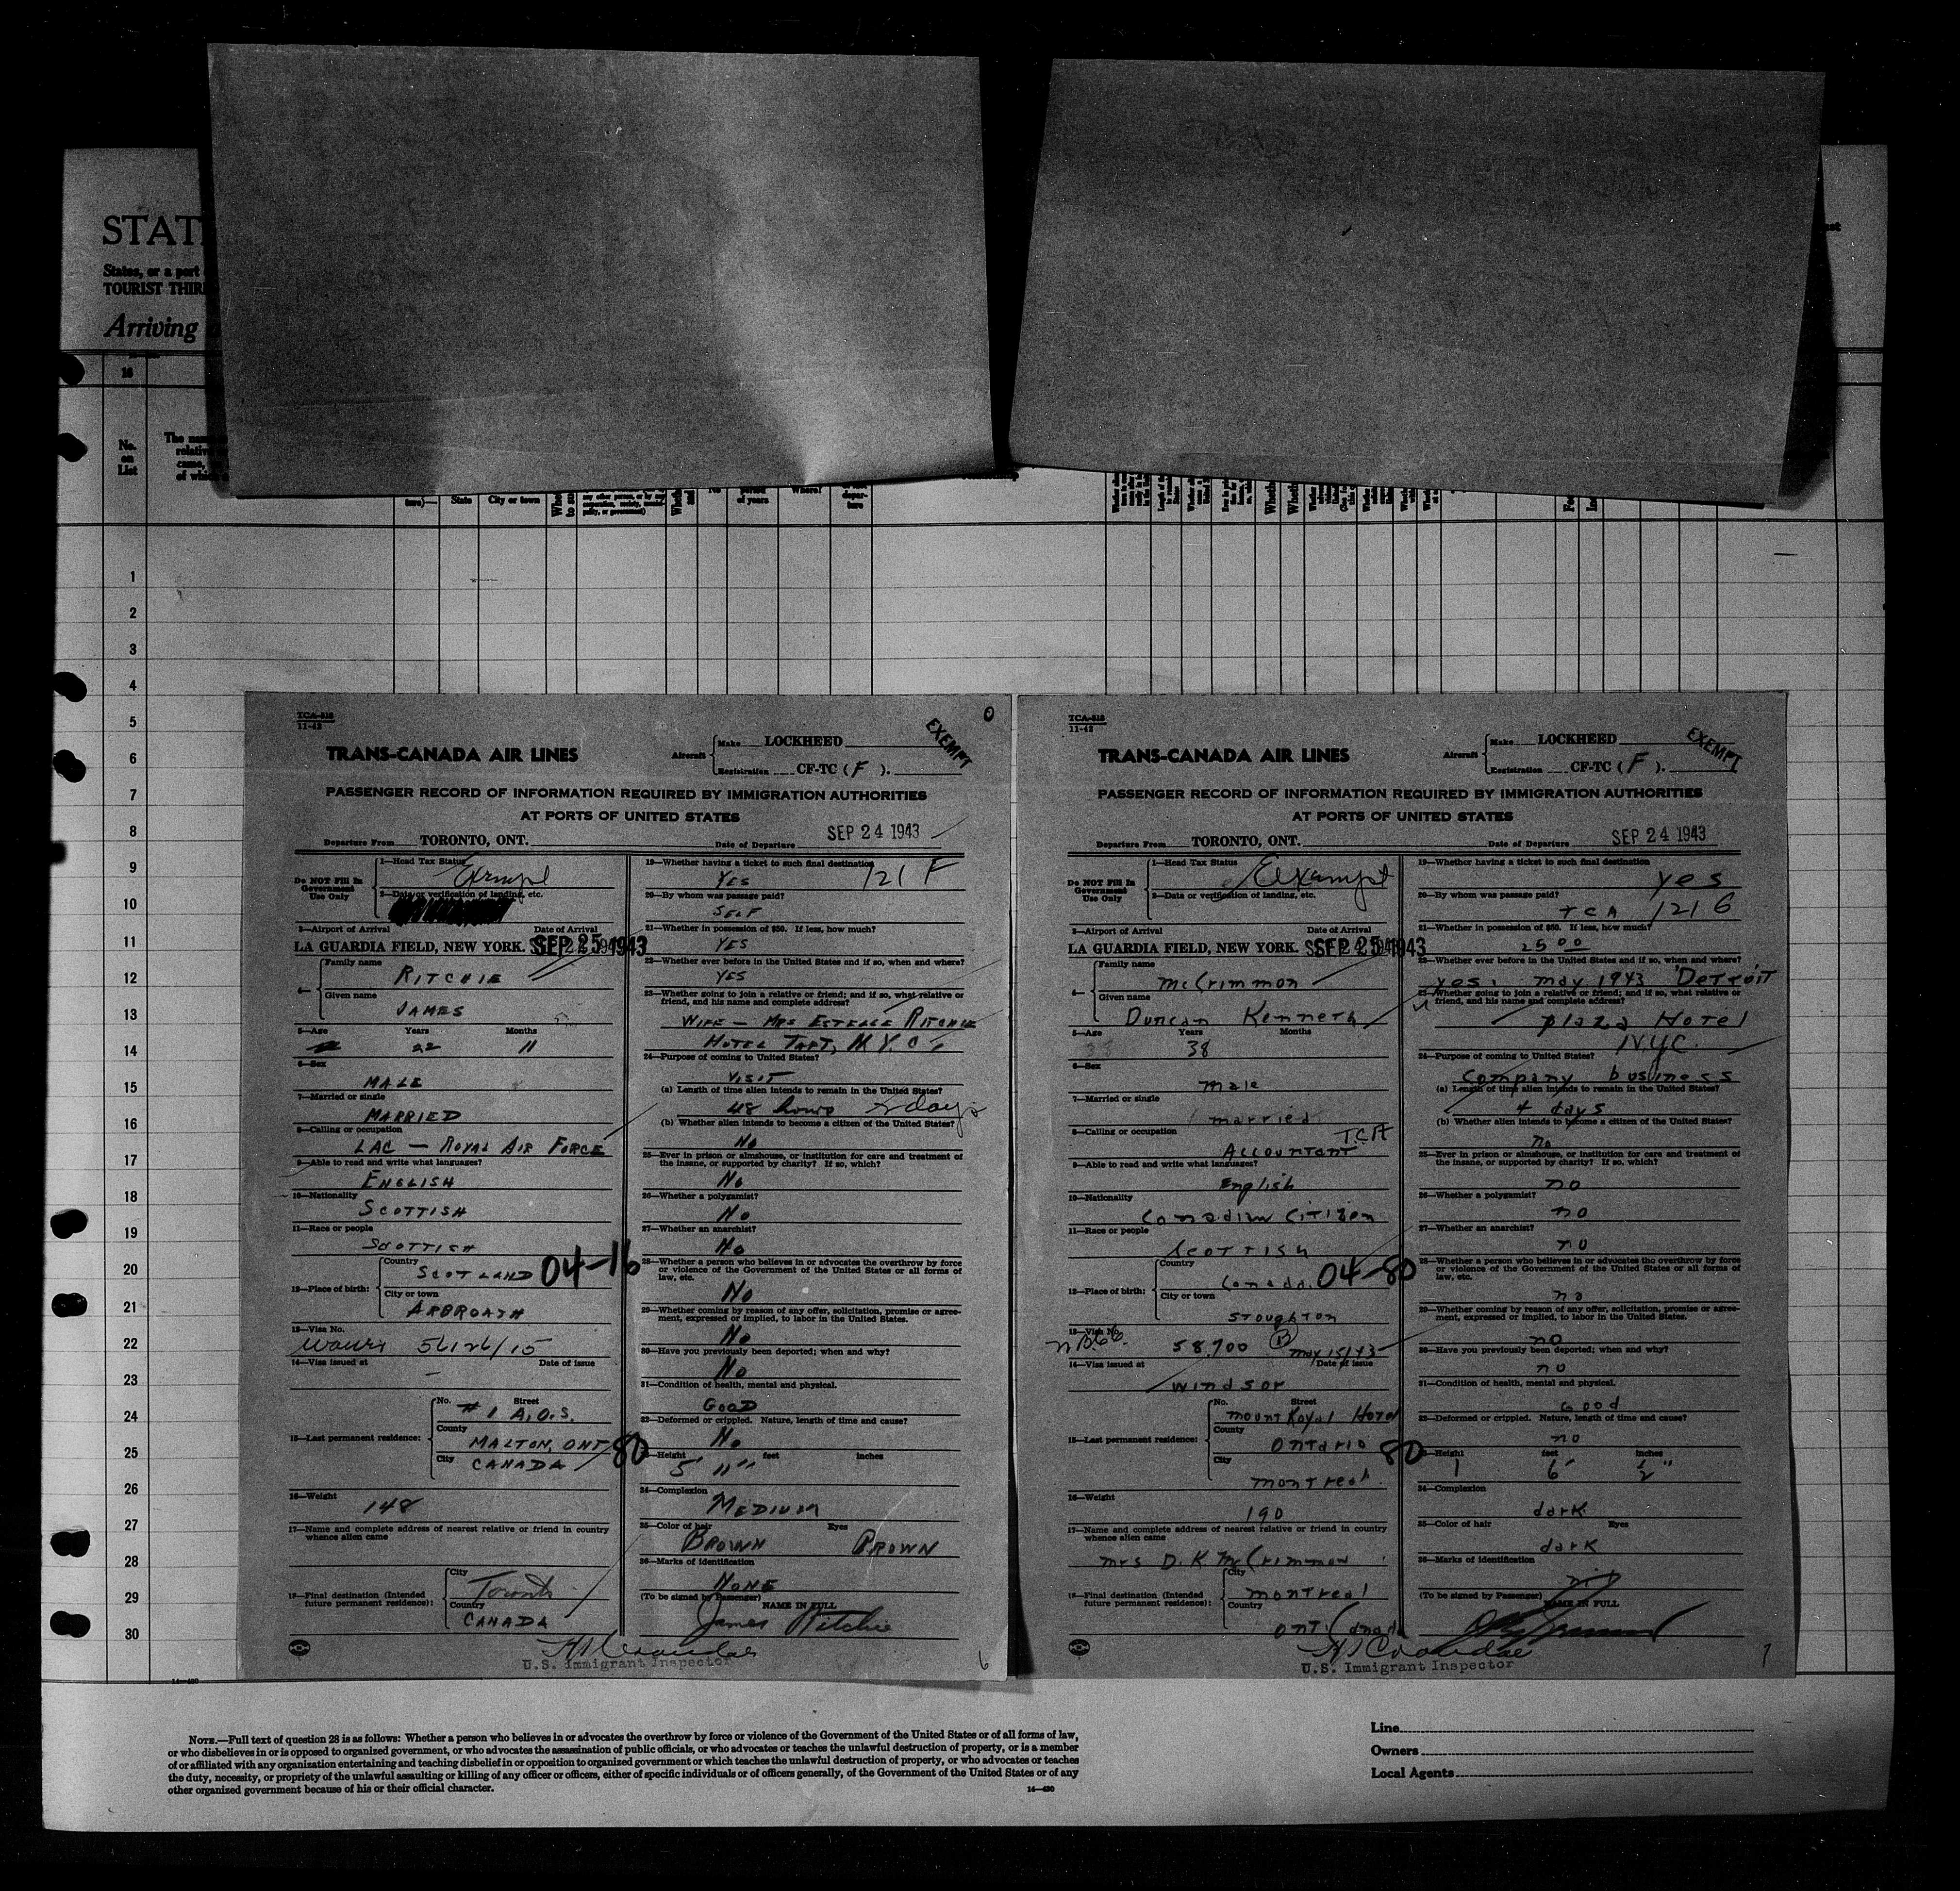 STAT
States, or a port
TOURIST THIR
Arriving
16
No.
on
List
State
City or town
of years
Where?
1
2
3
4
5
6
7
8
9
10
11
12
13
14
15
16
17
18
19
20
21
22
23
24
25
26
27
28
29
30
TCA-518
11-42
O
TRANS-CANADA AIR LINES
Aircraft
Make LOCKHEED
Registration CF-TC ( F ).
EXEMPT
PASSENGER RECORD OF INFORMATION REQUIRED BY IMMIGRATION AUTHORITIES
AT PORTS OF UNITED STATES
Departure From TORONTO, ONT. Date of Departure SEP 24 1943
Do NOT Fill In
Government
Use Only
1—Head Tax Status
Exempt
2—Date or verification of landing, etc.
3—Airport of Arrival Date of Arrival
LA GUARDIA FIELD, NEW YORK. SEP 25 1943
4—
Family name
RITCHIE
Given name
JAMES
5—Age Years Months
22 11
6—Sex
MALE
7—Married or single
MARRIED
8—Calling or occupation
LAC — ROYAL AIR FORCE
9—Able to read and write what languages?
ENGLISH
10—Nationality
SCOTTISH
11—Race or people
SCOTTISH
12—Place of birth:
Country
SCOTLAND 04-16
City or town
ARBROATH
13—Visa No.
14—Visa issued at Date of issue
15—Last permanent residence:
No. Street
#1 A.O.S.
County
MALTON, ONT 80
City
CANADA
16—Weight
148
17—Name and complete address of nearest relative or friend in country
whence alien came
18—Final destination (Intended
future permanent residence):
City
Toronto
Country
CANADA
19—Whether having a ticket to such final destination
YES 121 F
20—By whom was passage paid?
SELF
21—Whether in possession of $50. If less, how much?
YES
22—Whether ever before in the United States and if so, when and where?
YES
23—Whether going to join a relative or friend; and if so, what relative or
friend, and his name and complete address?
WIFE — MRS ESTELLE RITCHIE
HOTEL TAFT, N.Y.C.
24—Purpose of coming to United States?
VISIT
(a) Length of time alien intends to remain in the United States?
48 hours 2 days
(b) Whether alien intends to become a citizen of the United States?
No
25—Ever in prison or almshouse, or institution for care and treatment of
the insane, or supported by charity? If so, which?
No
26—Whether a polygamist?
No
27—Whether an anarchist?
No
28—Whether a person who believes in or advocates the overthrow by force
or violence of the Government of the United States or all forms of
law, etc.
No
29—Whether coming by reason of any offer, solicitation, promise or agree-
ment, expressed or implied, to labor in the United States.
No
30—Have you previously been deported; when and why?
No
31—Condition of health, mental and physical.
GOOD
32—Deformed or crippled. Nature, length of time and cause?
No
33—Height feet inches
5' 11"
34—Complexion
MEDIUM
35—Color of hair Eyes
BROWN BROWN
36—Marks of identification
NONE
(To be signed by Passenger)
NAME IN FULL
James Ritchie
U.S. Immigrant Inspector
6
TCA-518
11-42
TRANS-CANADA AIR LINES
Aircraft
Make LOCKHEED
Registration CF-TC ( F ).
EXEMPT
PASSENGER RECORD OF INFORMATION REQUIRED BY IMMIGRATION AUTHORITIES
AT PORTS OF UNITED STATES
Departure From TORONTO, ONT. Date of Departure SEP 24 1943
Do NOT Fill In
Government
Use Only
1—Head Tax Status
Exempt
2—Date or verification of landing, etc.
3—Airport of Arrival Date of Arrival
LA GUARDIA FIELD, NEW YORK. SEP 25 1943
4—
Family name
McCrimmon
Given name
Duncan Kenneth
5—Age Years Months
38
6—Sex
male
7—Married or single
married
8—Calling or occupation
Accountant TCA
9—Able to read and write what languages?
English
10—Nationality
Canadian Citizen
11—Race or people
Scottish
12—Place of birth:
Country
Canada 04-80
City or town
Stoughton
13—Visa No.
58,700 B May 15/43
14—Visa issued at Date of issue
Windsor
15—Last permanent residence:
No. Street
Mount Royal Hotel
County
Ontario 80
City
montreal
16—Weight
190
17—Name and complete address of nearest relative or friend in country
whence alien came
mrs D. K McCrimmon
18—Final destination (Intended
future permanent residence):
City
montreal
Country
ont Canada
19—Whether having a ticket to such final destination
yes
20—By whom was passage paid?
TCA 121 6
21—Whether in possession of $50. If less, how much?
25 00
22—Whether ever before in the United States and if so, when and where?
yes. may 1943 Detroit
23—Whether going to join a relative or friend; and if so, what relative or
friend, and his name and complete address?
plaza Hotel
N.Y.C.
24—Purpose of coming to United States?
Company business
(a) Length of time alien intends to remain in the United States?
4 days
(b) Whether alien intends to become a citizen of the United States?
no
25—Ever in prison or almshouse, or institution for care and treatment of
the insane, or supported by charity? If so, which?
no
26—Whether a polygamist?
no
27—Whether an anarchist?
no
28—Whether a person who believes in or advocates the overthrow by force
or violence of the Government of the United States or all forms of
law, etc.
no
29—Whether coming by reason of any offer, solicitation, promise or agree-
ment, expressed or implied, to labor in the United States.
no
30—Have you previously been deported; when and why?
no
31—Condition of health, mental and physical.
Good
32—Deformed or crippled. Nature, length of time and cause?
no
33—Height feet inches
6' 1/2"
34—Complexion
dark
35—Color of hair Eyes
dark
36—Marks of identification
(To be signed by Passenger)
NAME IN FULL
U.S. Immigrant Inspector
7
NOTE.—Full text of question 28 is as follows: Whether a person who believes in or advocates the overthrow by force or violence of the Government of the United States or of all forms of law,
or who disbelieves in or is opposed to organized government, or who advocates the assassination of public officials, or who advocates or teaches the unlawful destruction of property, or is a member
of or affiliated with any organization entertaining and teaching disbelief in or opposition to organized government or which teaches the unlawful destruction of property, or who advocates or teaches
the duty, necessity, or propriety of the unlawful assaulting or killing of any officer or officers, either of specific individuals or of officers generally, of the Government of the United States or of any
other organized government because of his or their official character.
Line
Owners
Local Agents